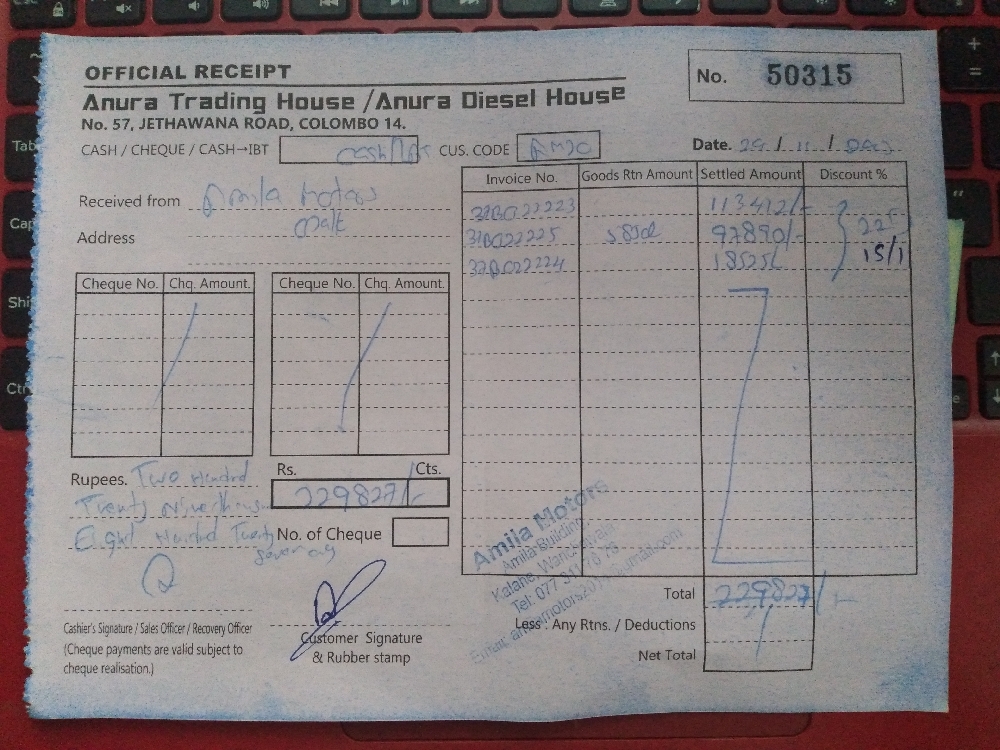 OFFICIAL RECEIPT
No. 50315
Anura Trading House /Anura Diesel House
No. 57, JETHAWANA ROAD, COLOMBO 14.
CASH / CHEQUE / CASH→IBT CUS. CODE
Date. 29 / 11 /
Received from Amila Motors
Address
Invoice No. Goods Rtn Amount Settled Amount Discount %
113412/-
97890/-
18525/-
15/1
Cheque No. Chq. Amount. Cheque No. Chq. Amount.
Rupees. Two Hundred
Twenty
Eight Hundred Twenty
Seven only
Rs. /Cts.
229827/-
No. of Cheque
Amila Motors
Amila Building,
Tel: 077
Total 229827/-
Less : Any Rtns. / Deductions
Net Total
Cashier's Signature / Sales Officer / Recovery Officer
(Cheque payments are valid subject to
cheque realisation.)
Customer Signature
& Rubber stamp